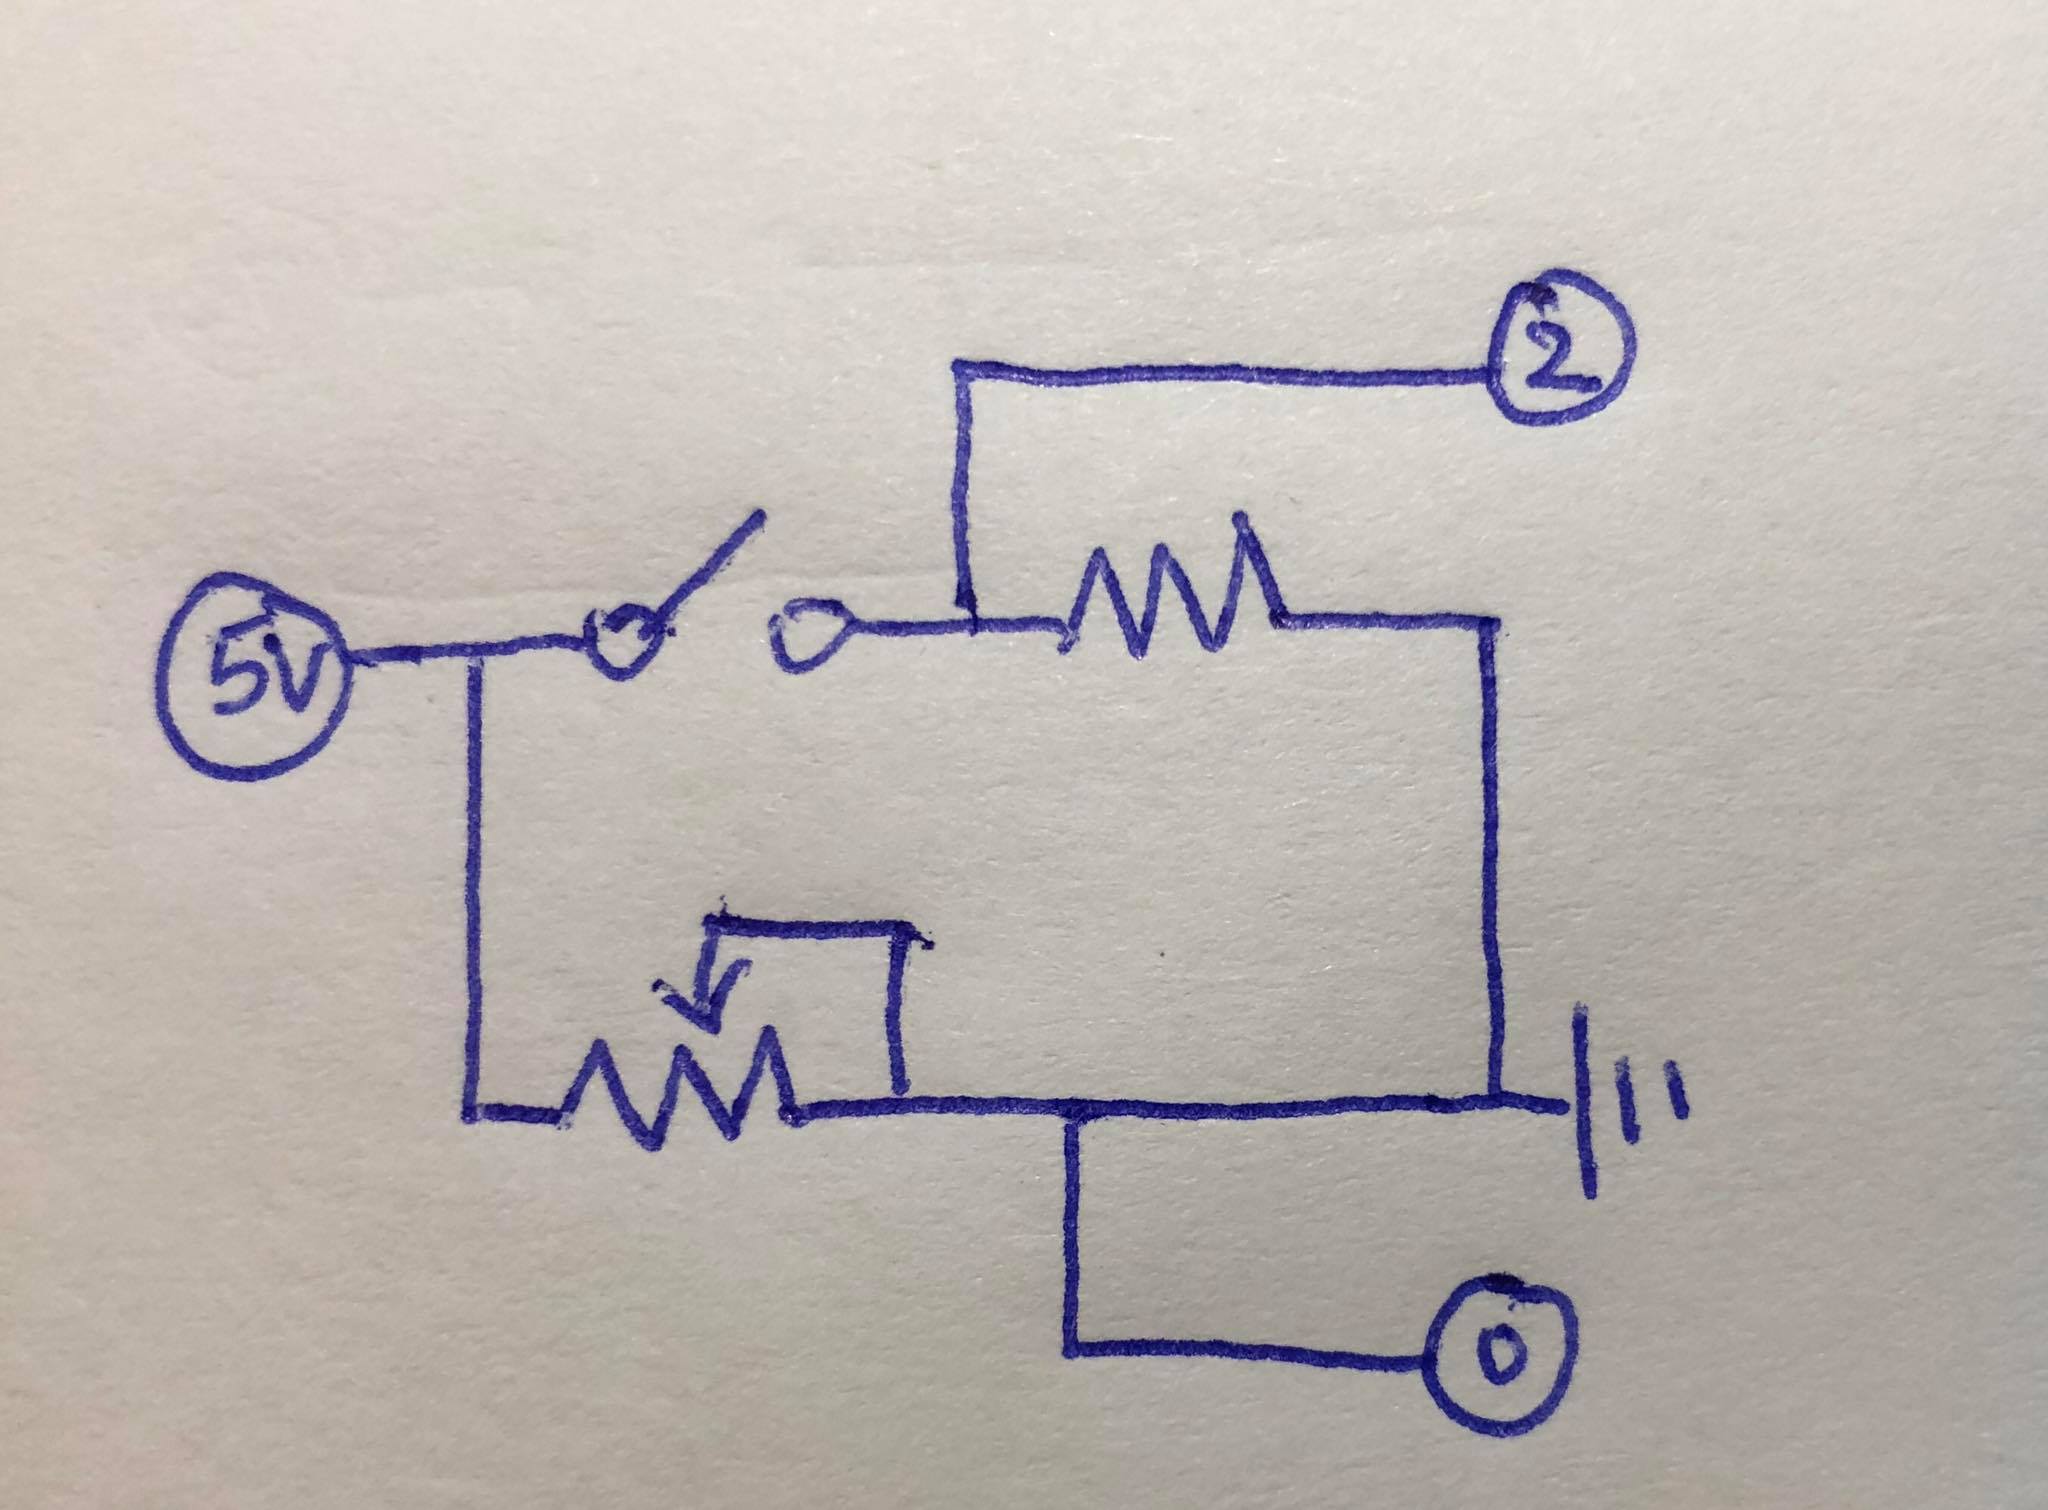 2
5V
0